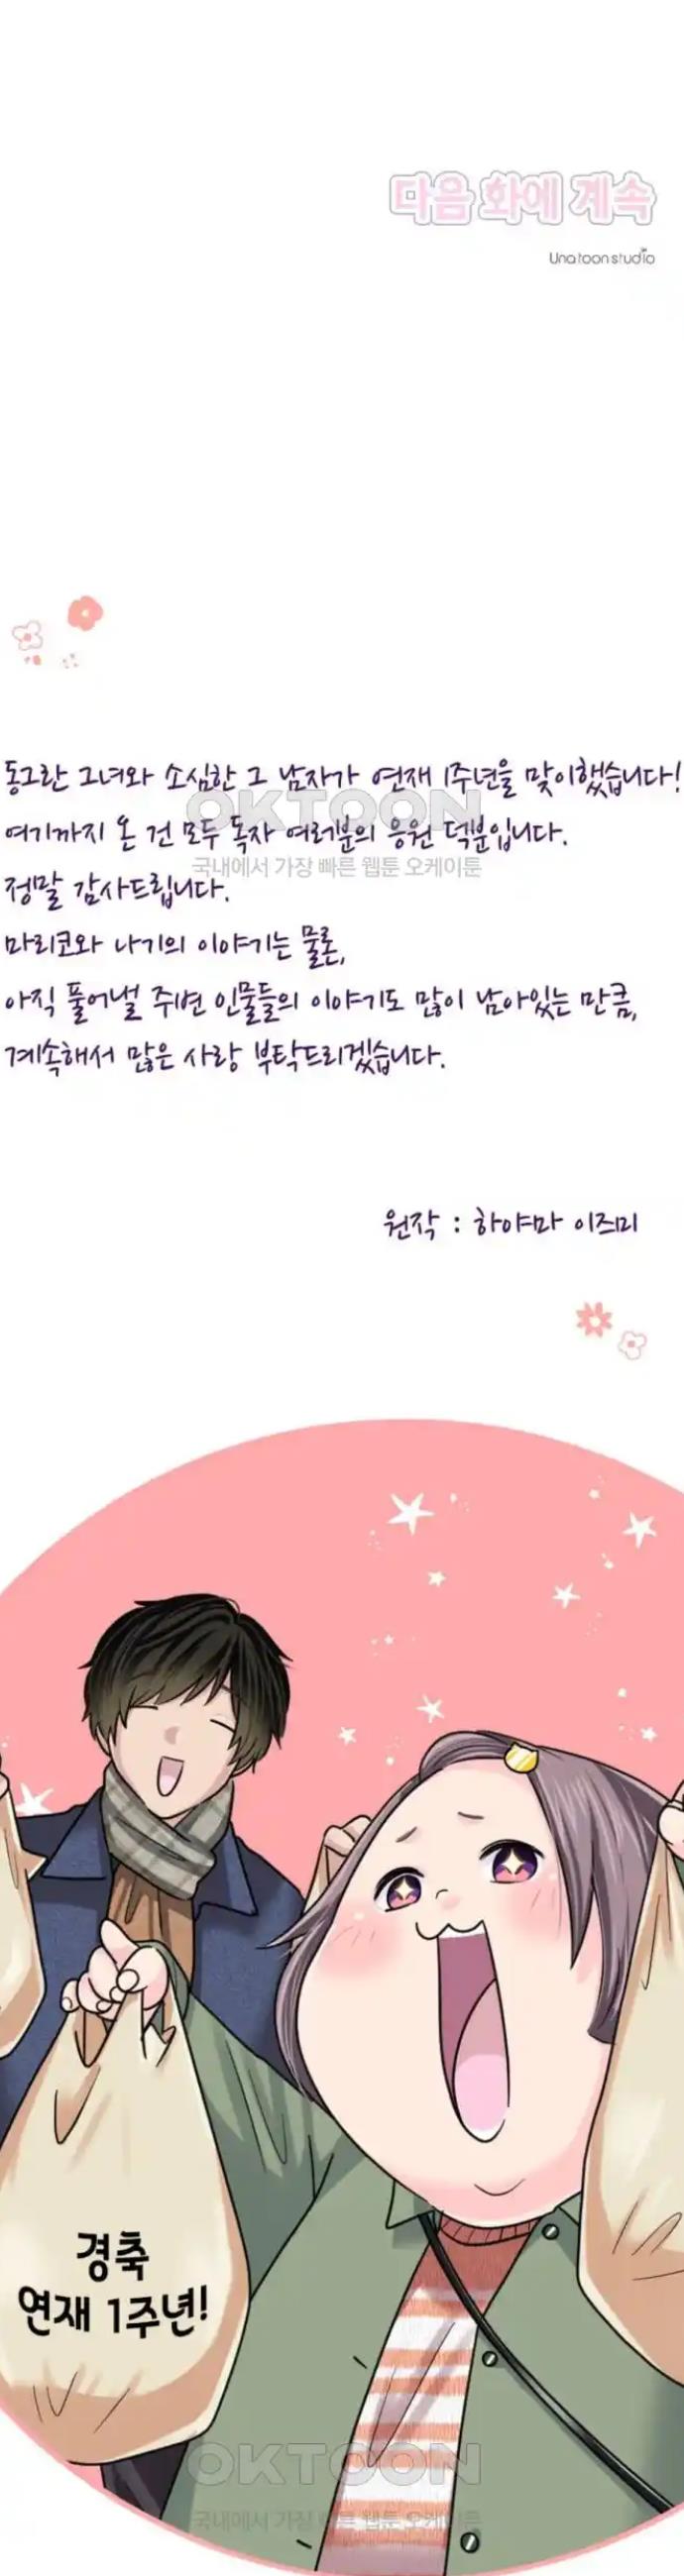 다음 화에 계속
Una toon studio
동그란 그녀와 소심한 그 남자가 연재 1주년을 맞이했습니다!
OKTOON
여기까지 온 건 모두 독자 여러분의 응원 덕분입니다.
국내에서 가장 빠른 웹툰 오케이툰
정말 감사드립니다.
마리코와 나기의 이야기는 물론,
아직 풀어낼 주변 인물들의 이야기도 많이 남아있는 만큼,
계속해서 많은 사랑 부탁드리겠습니다.
원작 : 하야마 이즈미
경축
연재 1주년!
OKTOON
국내에서 가장 빠른 웹툰 오케이툰